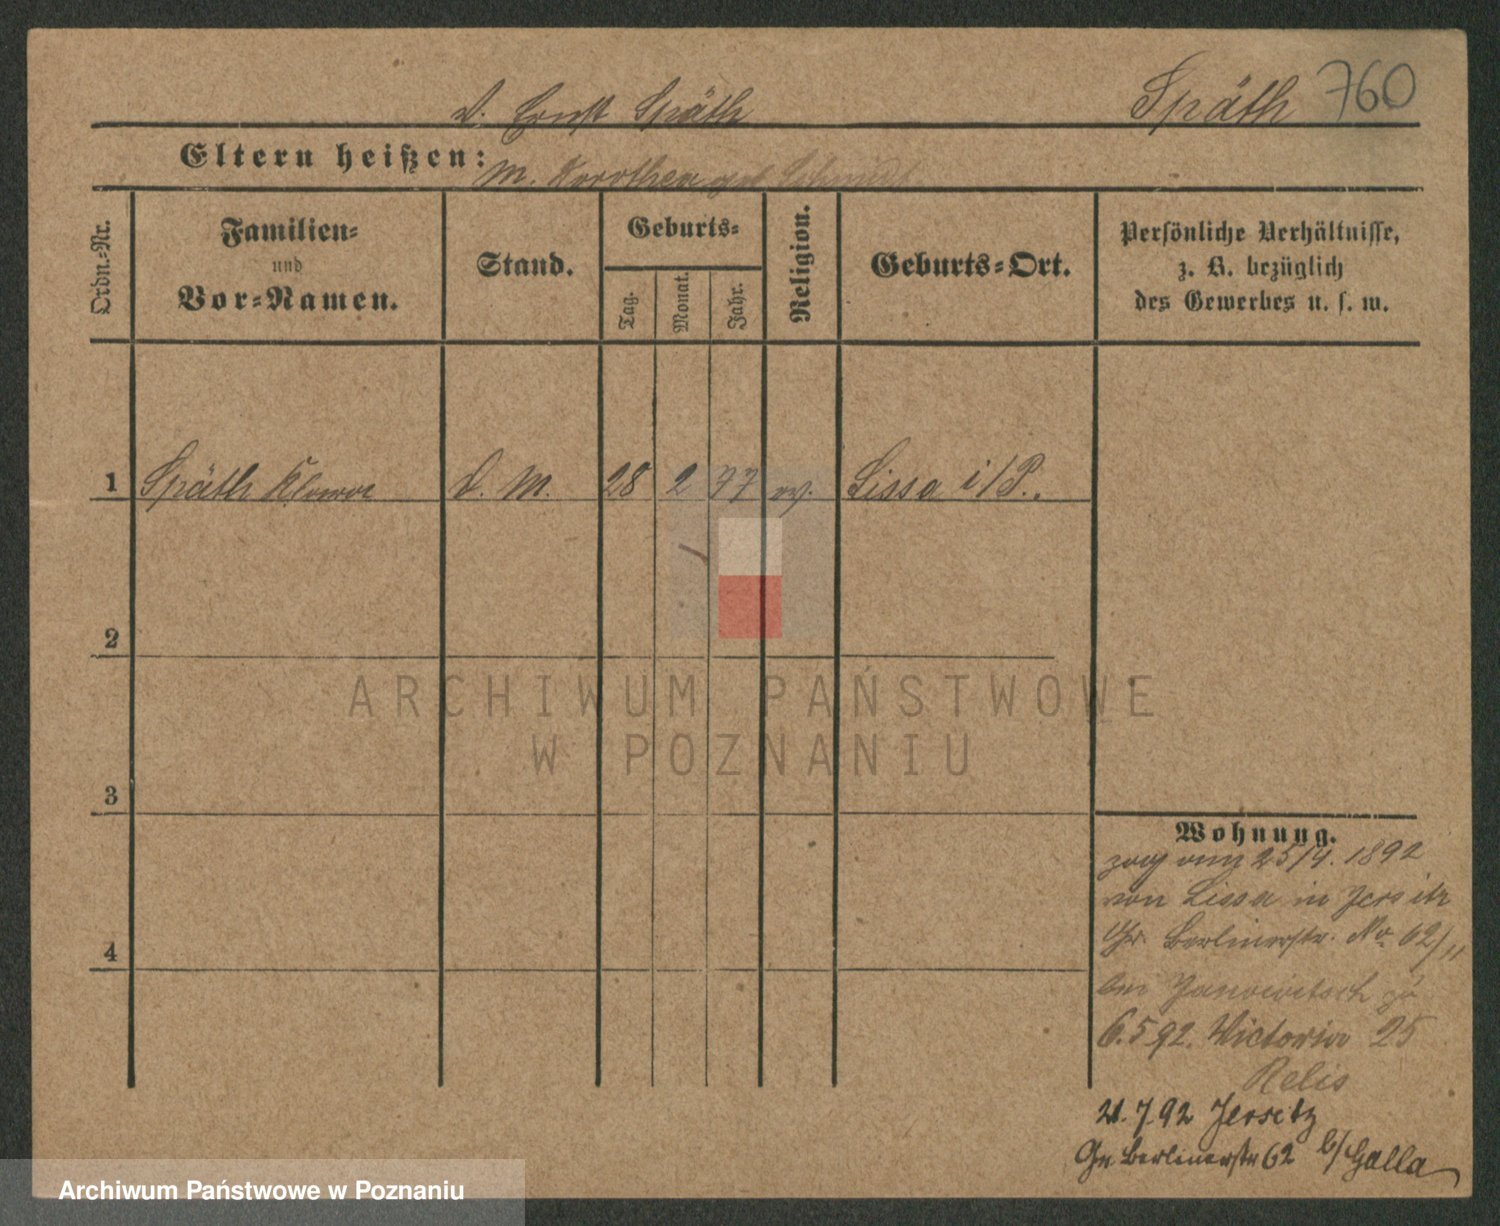 V. Ernst Späth
Späth 760
Eltern heißen:
M. Dorothea geb. Schmidt
Ordn.-Nr.
Familien-
und
Vor-Namen.
Stand.
Geburts-
Tag.
Monat.
Jahr.
Religion.
Geburts-Ort.
Persönliche Verhältnisse,
z. B. bezüglich
des Gewerbes u. s. w.
1 Späth Klara D. M. 28 2 77 ev. Lissa i/P.
2
ARCHIWUM PAŃSTWOWE
W POZNANIU
3
Wohnung.
zog am 25/4. 1892
von Lissa in Jersitz
Gr. Berlinerstr. No 62/II
bei Janowitsch
4
6.5 92. Victoria 25
Relis
21.7.92 Jersitz
Gr. Berlinerstr 62 b/Galla
Archiwum Państwowe w Poznaniu